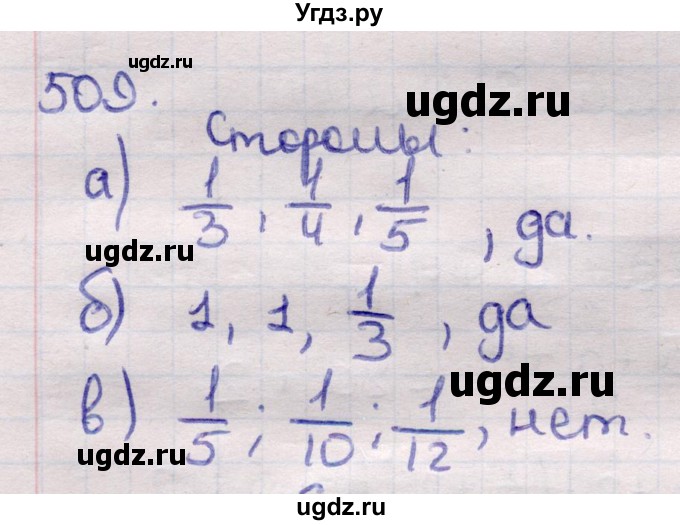 Угдз.ру
ugdz.ru
509.
ugdz.ru
Стороны:
а) 1/3, 1/4, 1/5, да.
ugdz.ru
ugdz.ru
б) 1, 1, 1/3, да
ugdz.ru
в) 1/5; 1/10; 1/12, нет.
ugdz.ru
ugdz.ru